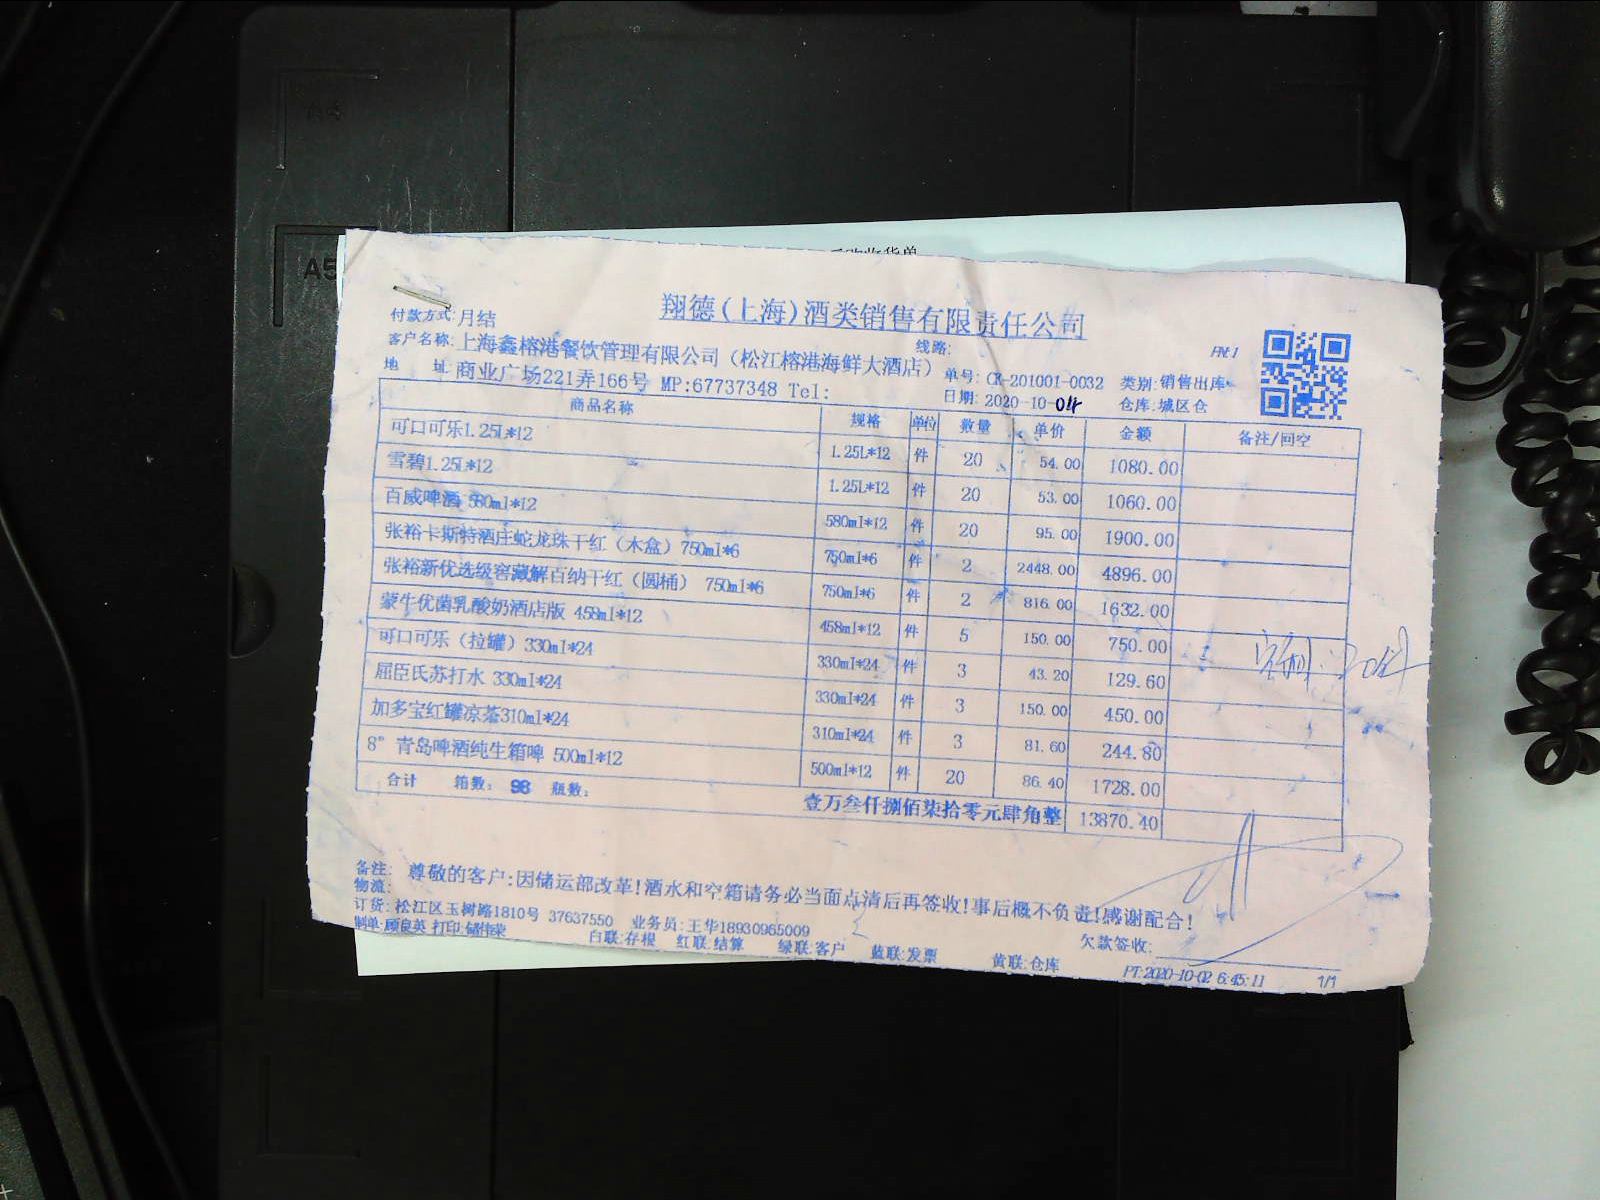 A5
翔德(上海)酒类销售有限责任公司
付款方式:月结
客户名称:上海鑫榕港餐饮管理有限公司(松江榕港海鲜大酒店) 线路:
地 址:商业广场221弄166号 MP:67737348 Tel:
单号: CK-201001-0032 类别:销售出库
日期: 2020-10-04 仓库:城区仓
商品名称 规格 单位 数量 单价 金额 备注/回空
可口可乐1.25L*12 1.25L*12 件 20 54.00 1080.00
雪碧1.25L*12 1.25L*12 件 20 53.00 1060.00
百威啤酒 580ml*12 580ml*12 件 20 95.00 1900.00
张裕卡斯特酒庄蛇龙珠干红(木盒)750ml*6 750ml*6 件 2 2448.00 4896.00
张裕新优选级窖藏解百纳干红(圆桶) 750ml*6 750ml*6 件 2 816.00 1632.00
蒙牛优菌乳酸奶酒店版 458ml*12 458ml*12 件 5 150.00 750.00
可口可乐(拉罐)330ml*24 330ml*24 件 3 43.20 129.60
屈臣氏苏打水 330ml*24 330ml*24 件 3 150.00 450.00
加多宝红罐凉茶310ml*24 310ml*24 件 3 81.60 244.80
8° 青岛啤酒纯生箱啤 500ml*12 500ml*12 件 20 86.40 1728.00
合计 箱数: 98 瓶数: 壹万叁仟捌佰柒拾零元肆角整 13870.40
备注: 尊敬的客户:因储运部改革!酒水和空箱请务必当面点清后再签收!事后概不负责!感谢配合!
物流:
订货: 松江区玉树路1810号 37637550 业务员:王华18930965009
欠款签收:
制单:顾良英 打印:储伟荣 白联:存根 红联:结算 绿联:客户 蓝联:发票 黄联:仓库
PT:2020-10-02 6:45:11 1/1